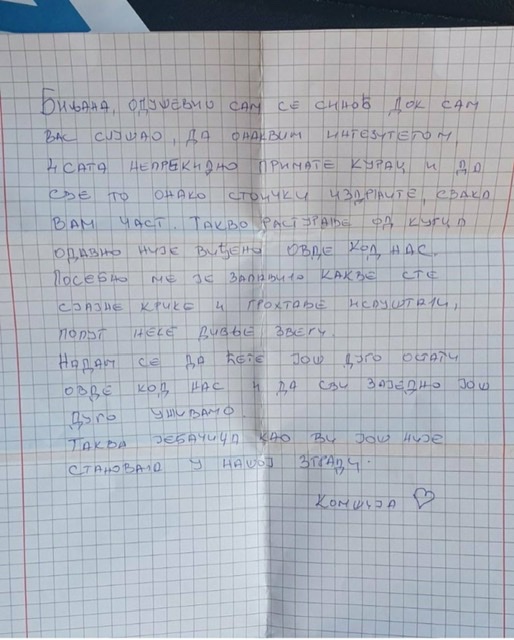 Биљана, одушевио сам се синоћ док сам
вас слушао, да онаквим интезитетом
4 сата непрекидно примате курац и да
све то онако стоички издржите, свака
вам част. Такво растурање од курца
одавно није виђено овде код нас.
Посебно ме је запалило какве сте
сјајне крике и грохтање испуштали,
попут неке дивље звери.
Надам се да ћете још дуго остати
овде код нас и да сви заједно још
дуго уживамо.
Таква јебачица као ви још није
становала у нашој згради.
Комшија ♡